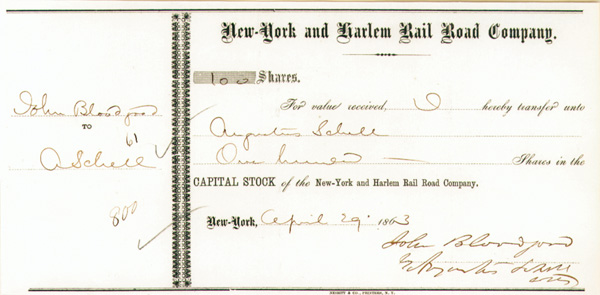 New-York and Harlem Rail Road Company.
100 Shares.
For value received, I hereby transfer unto
Augustus Schell
One hundred Shares in the
CAPITAL STOCK of the New-York and Harlem Rail Road Company.
New-York, April 29 1863
John Bloodgood
Augustus Schell
John Bloodgood
TO
61
A Schell
800
NESBITT & CO., PRINTERS, N. Y.